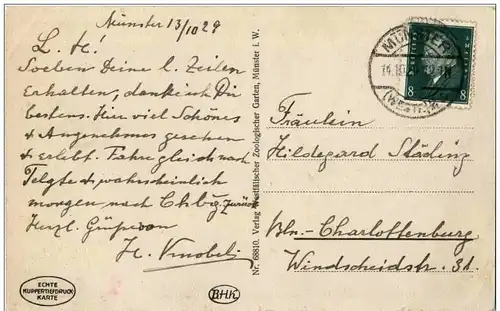 Münster 13/10 29
L. H!
Soeben Deine l. Zeilen
Erhalten, danke ich Dir
bestens. Hier viel Schönes
& Angenehmes gesehen
& erlebt. Fahre gleich nach
Telgte & wahrscheinlich
morgen nach Chbg. zurück
Herzl. Grüße von
H.
ECHTE
KUPFERTIEFDRUCK
KARTE
Nr. 68810. Verlag Westfälischer Zoologischer Garten, Münster i. W.
BHK
MÜNSTER
14.10.
(WESTF.)
8 8
Fräulein
Hildegard Städing
Bln.-Charlottenburg
Windscheidstr. 31.